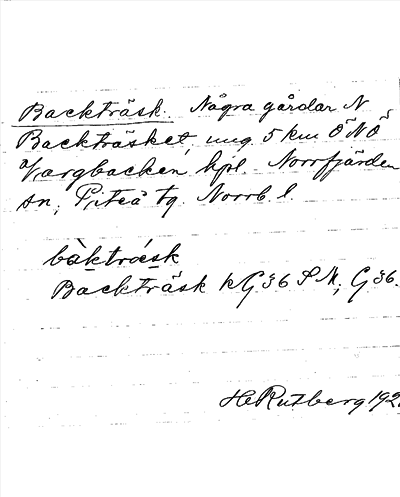 Backträsk. Några gårdar N
Backträsket, ung. 5 km ÖNÖ
Vargbacken hpl. Norrfjärden
sn, Piteå tg. Norrb. l.
bàktrǽsk
Backträsk kG36 SM; G36.
HRutberg 192